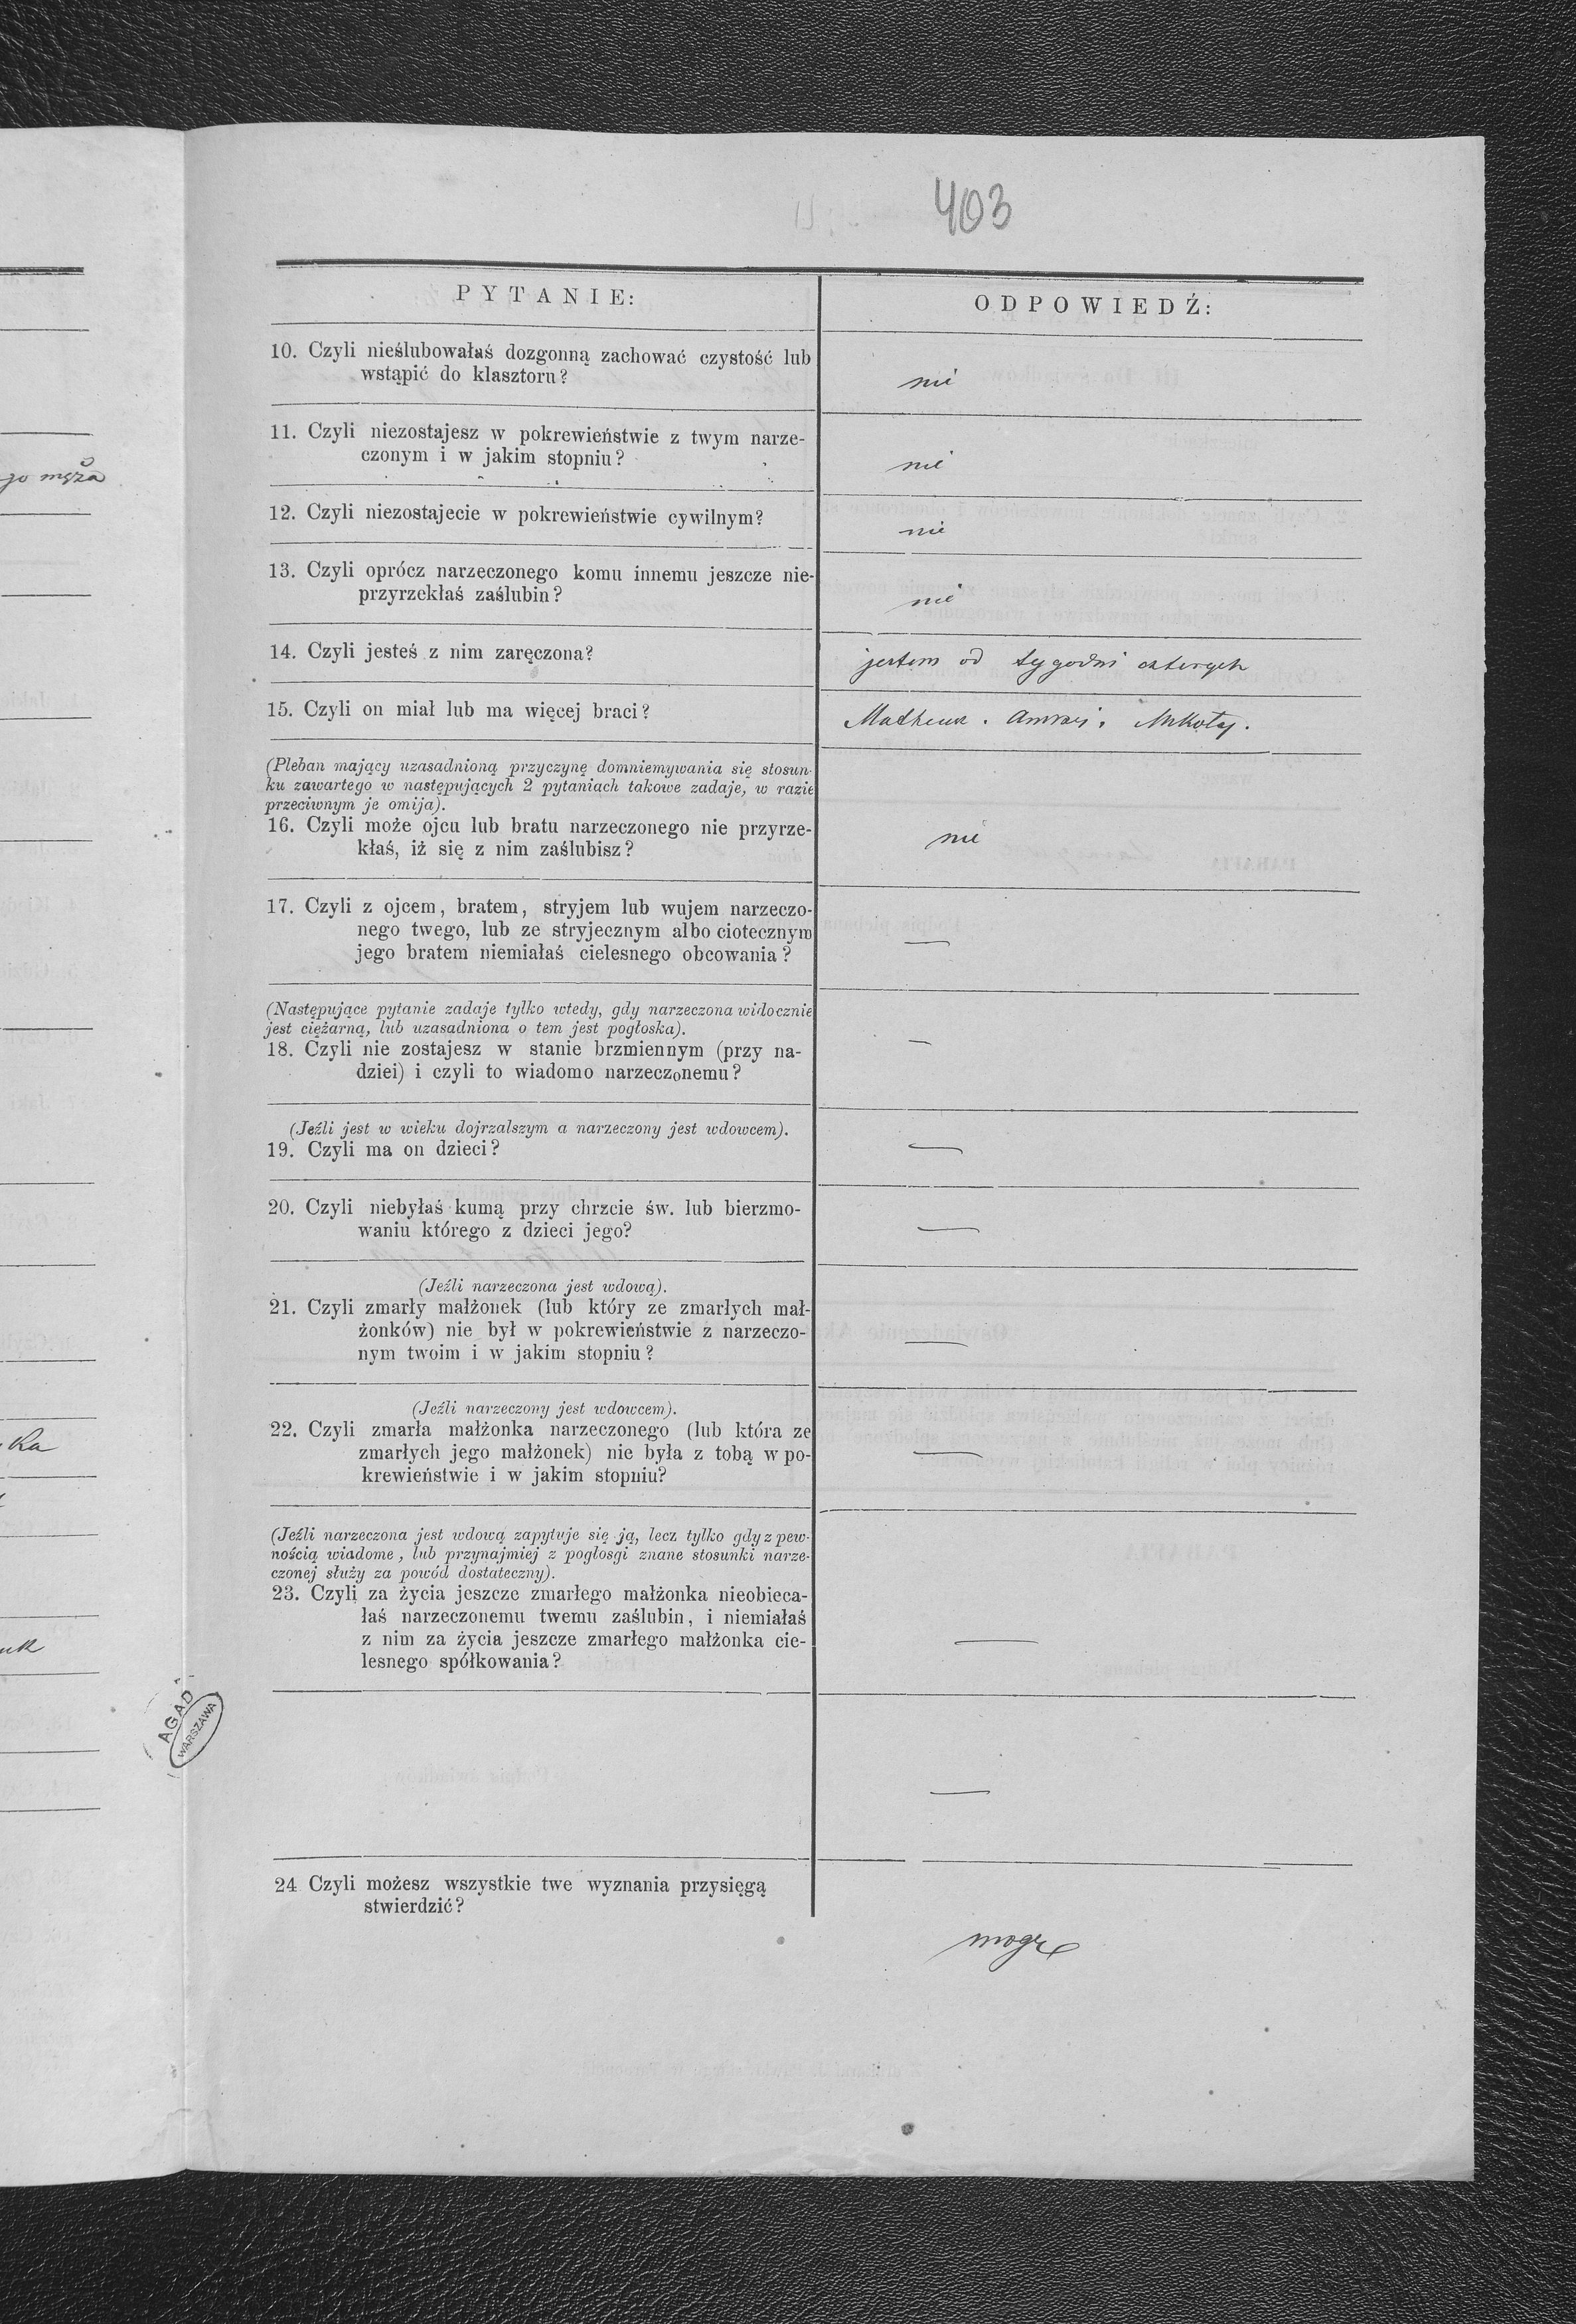 403
go męża
PYTANIE:
ODPOWIEDŹ:
10. Czyli nieślubowałaś dozgonną zachować czystość lub
wstąpić do klasztoru?
nie
11. Czyli niezostajesz w pokrewieństwie z twym narze-
czonym i w jakim stopniu?
nie
12. Czyli niezostajecie w pokrewieństwie cywilnym?
nie
13. Czyli oprócz narzeczonego komu innemu jeszcze nie-
przyrzekłaś zaślubin?
nie
14. Czyli jesteś z nim zaręczona?
jestem od tygodni czterech
15. Czyli on miał lub ma więcej braci?
Mikołaj.
(Pleban mający uzasadnioną przyczynę domniemywania się stosun-
ku zawartego w następujących 2 pytaniach takowe zadaje, w razie
przeciwnym je omija).
16. Czyli może ojcu lub bratu narzeczonego nie przyrze-
kłaś, iż się z nim zaślubisz?
nie
17. Czyli z ojcem, bratem, stryjem lub wujem narzeczo-
nego twego, lub ze stryjecznym albo ciotecznym
jego bratem niemiałaś cielesnego obcowania?
—
(Następujące pytanie zadaje tylko wtedy, gdy narzeczona widocznie
jest ciężarną, lub uzasadniona o tem jest pogłoska).
18. Czyli nie zostajesz w stanie brzmiennym (przy na-
dziei) i czyli to wiadomo narzeczonemu?
—
(Jeźli jest w wieku dojrzalszym a narzeczony jest wdowcem).
19. Czyli ma on dzieci?
—
20. Czyli niebyłaś kumą przy chrzcie św. lub bierzmo-
waniu którego z dzieci jego?
—
(Jeźli narzeczona jest wdową).
21. Czyli zmarły małżonek (lub który ze zmarłych mał-
żonków) nie był w pokrewieństwie z narzeczo-
nym twoim i w jakim stopniu?
—
(Jeźli narzeczony jest wdowcem).
22. Czyli zmarła małżonka narzeczonego (lub która ze
zmarłych jego małżonek) nie była z tobą w po-
krewieństwie i w jakim stopniu?
—
(Jeźli narzeczona jest wdową zapytuje się ją, lecz tylko gdy z pew-
nością wiadome, lub przynajmiej z pogłosgi znane stosunki narze-
czonej służy za powód dostateczny).
23. Czyli za życia jeszcze zmarłego małżonka nieobieca-
łaś narzeczonemu twemu zaślubin, i niemiałaś
z nim za życia jeszcze zmarłego małżonka cie-
lesnego spółkowania?
—
—
AGAD
WARSZAWA
24 Czyli możesz wszystkie twe wyznania przysięgą
stwierdzić?
mogę